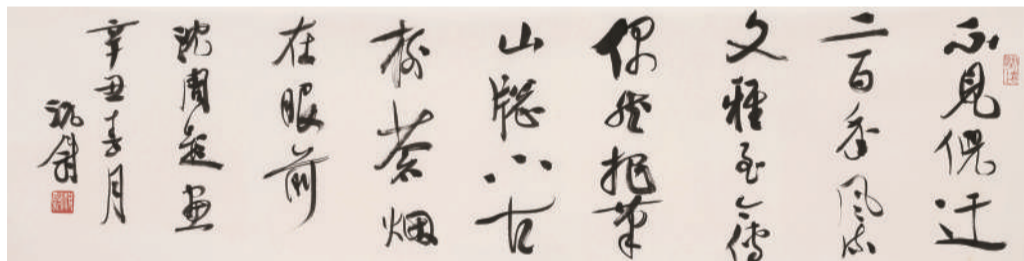 不見倪迂
二百年風流
文雅至今傳
偶然把筆
山牕下古
樹蒼烟
在眼前
沈周題畫
辛丑春月